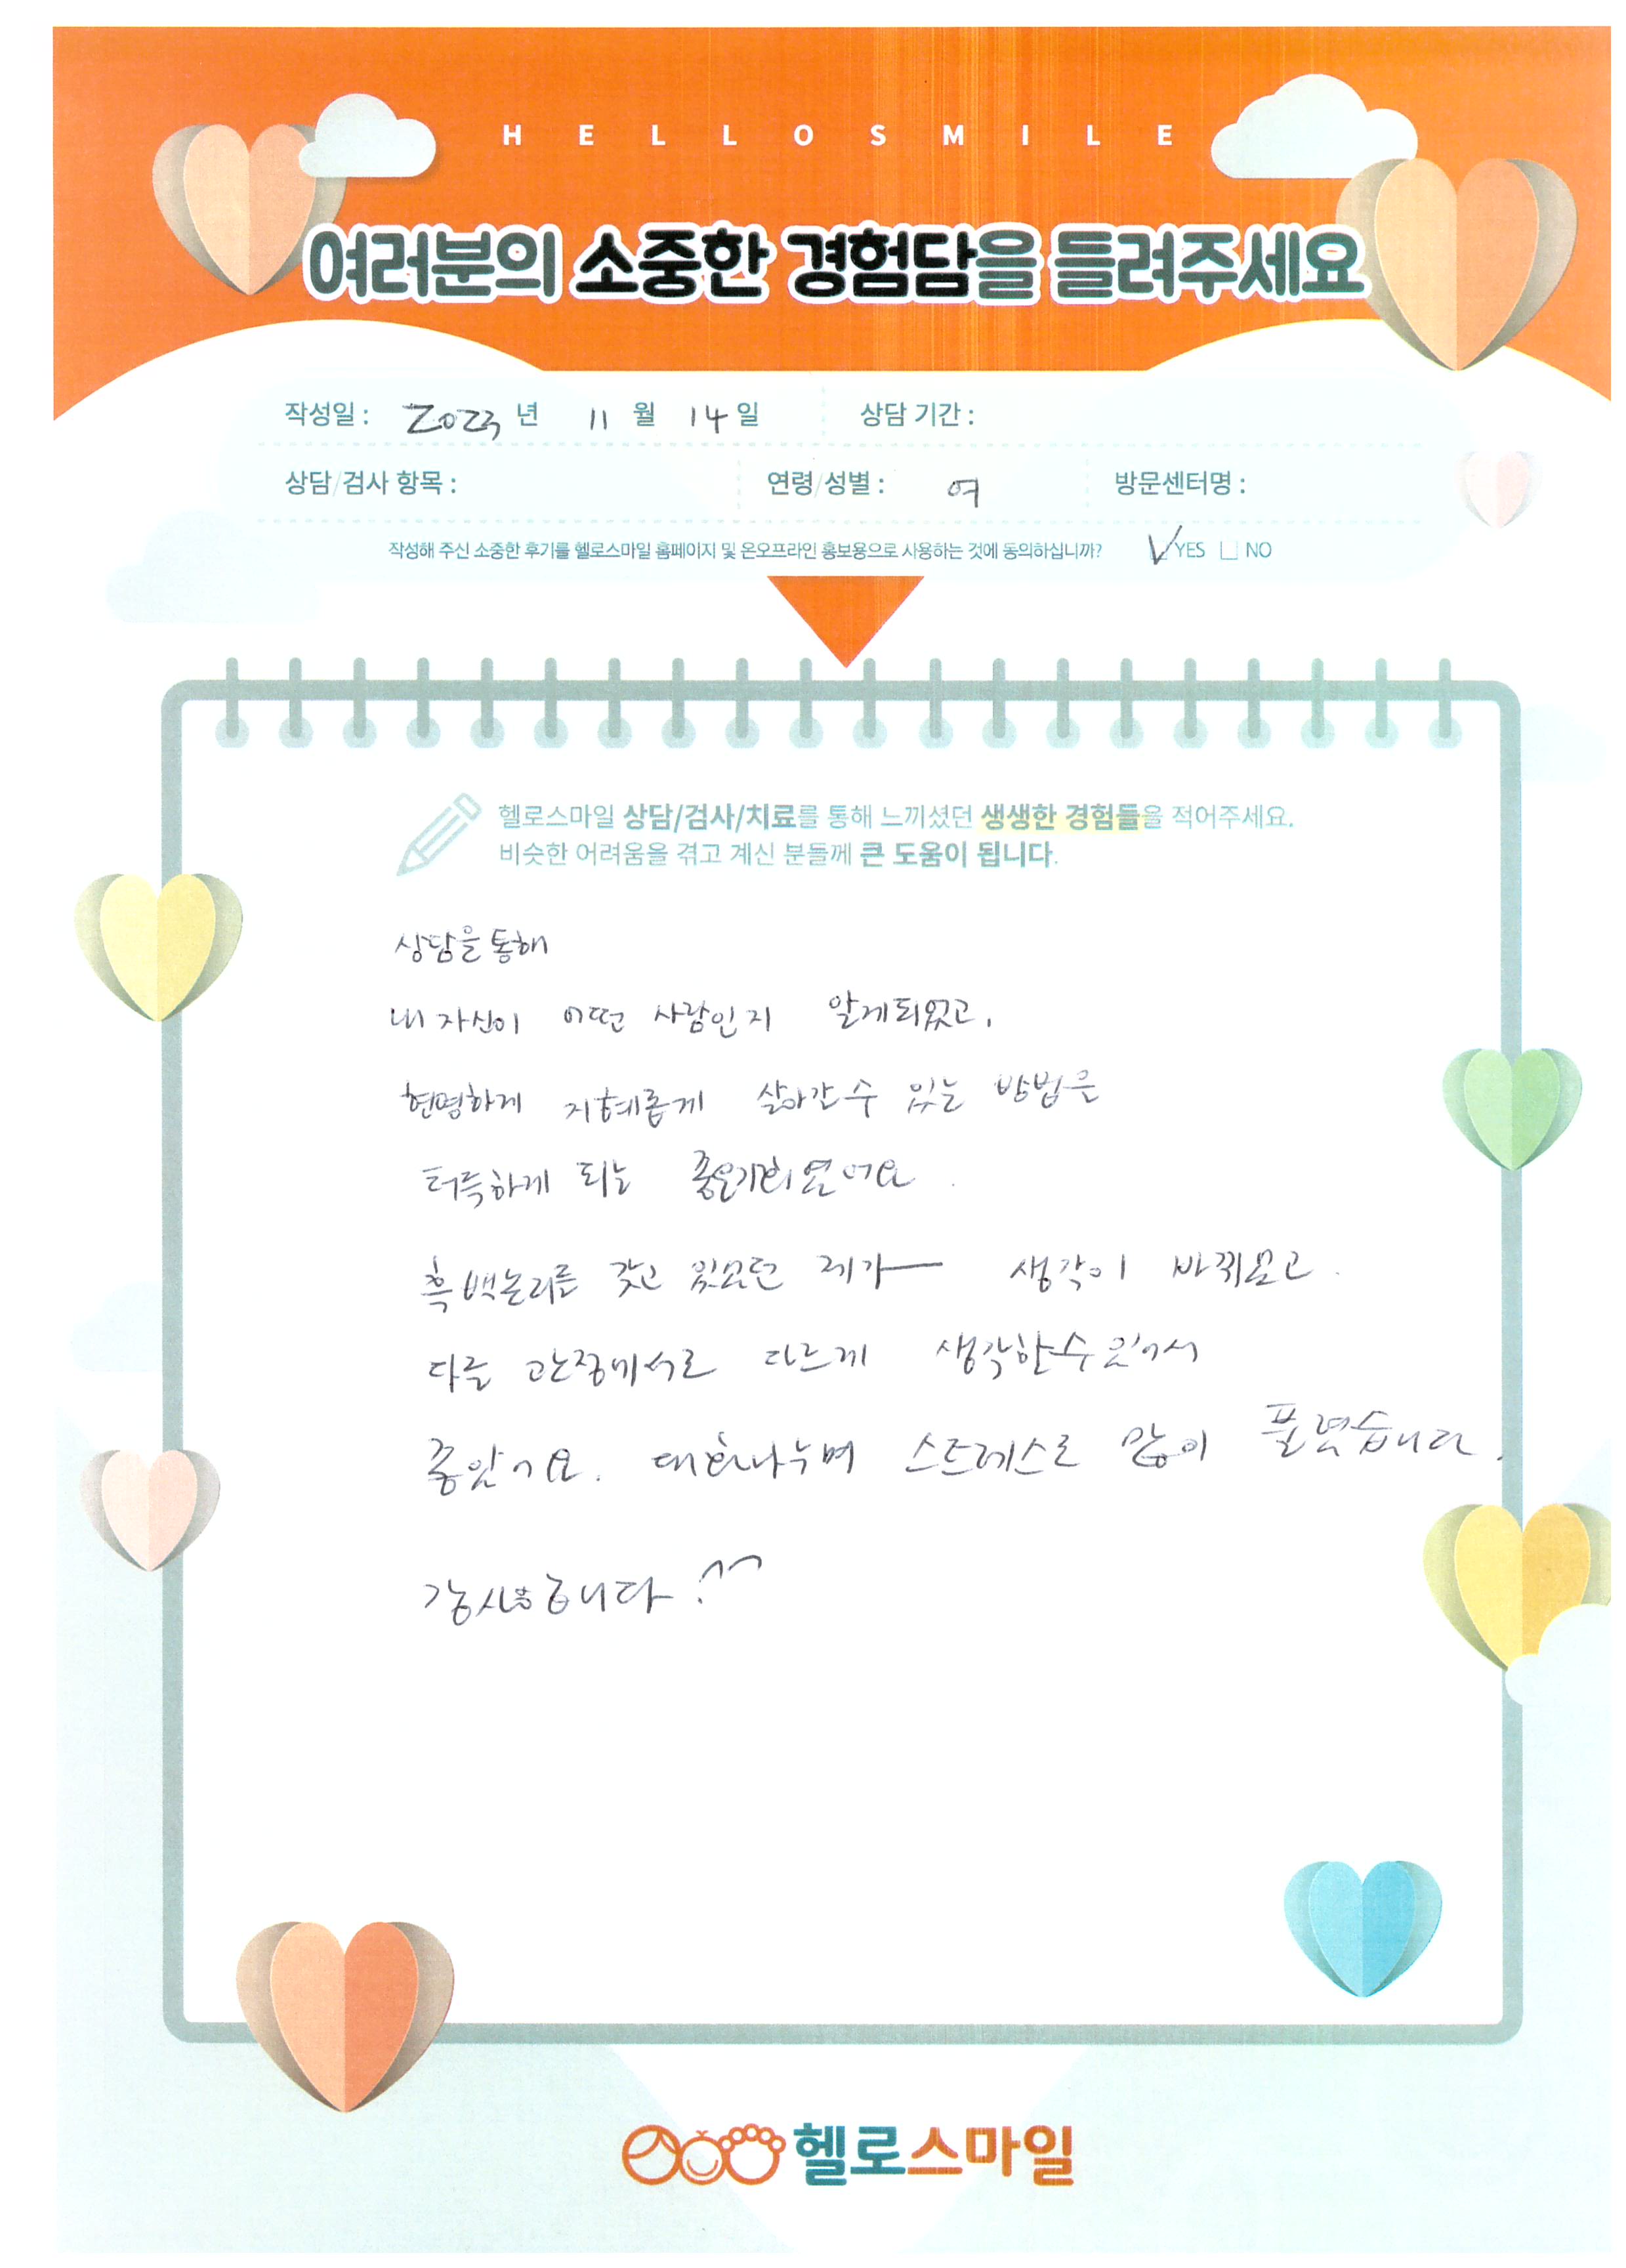 HELLOSMILE
여러분의 소중한 경험담을 들려주세요
작성일 : 2023 년 11 월 14 일 상담 기간 :
상담/검사 항목 : 연령/성별 : 여 방문센터명 :
작성해 주신 소중한 후기를 헬로스마일 홈페이지 및 온오프라인 홍보용으로 사용하는 것에 동의하십니까? YES NO
헬로스마일 상담/검사/치료를 통해 느끼셨던 생생한 경험들을 적어주세요.
비슷한 어려움을 겪고 계신 분들께 큰 도움이 됩니다.
상담을 통해
내 자신이 어떤 사람인지 알게되었고,
현명하게 지혜롭게 살아갈 수 있는 방법을
터득하게 되는 좋은기회였어요.
흑백논리를 갖고 있었던 제가 생각이 바뀌었고.
다른 관점에서도 다르게 생각할수있어서
좋았어요. 대화나누며 스트레스도 많이 풀렸습니다.
감사합니다! ^^
헬로스마일